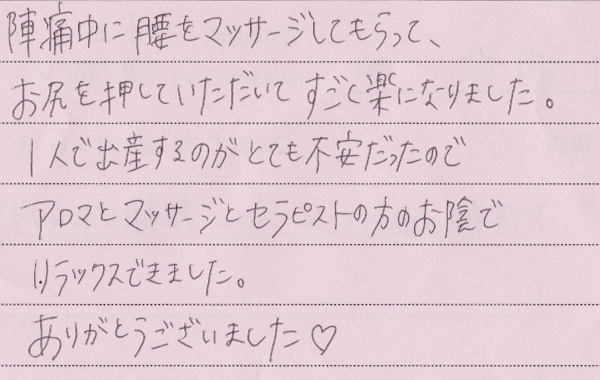 陣痛中に腰をマッサージしてもらって、
お尻を押していただいてすごく楽になりました。
1人で出産するのがとても不安だったので
アロマとマッサージとセラピストの方のお陰で
リラックスできました。
ありがとうございました♡